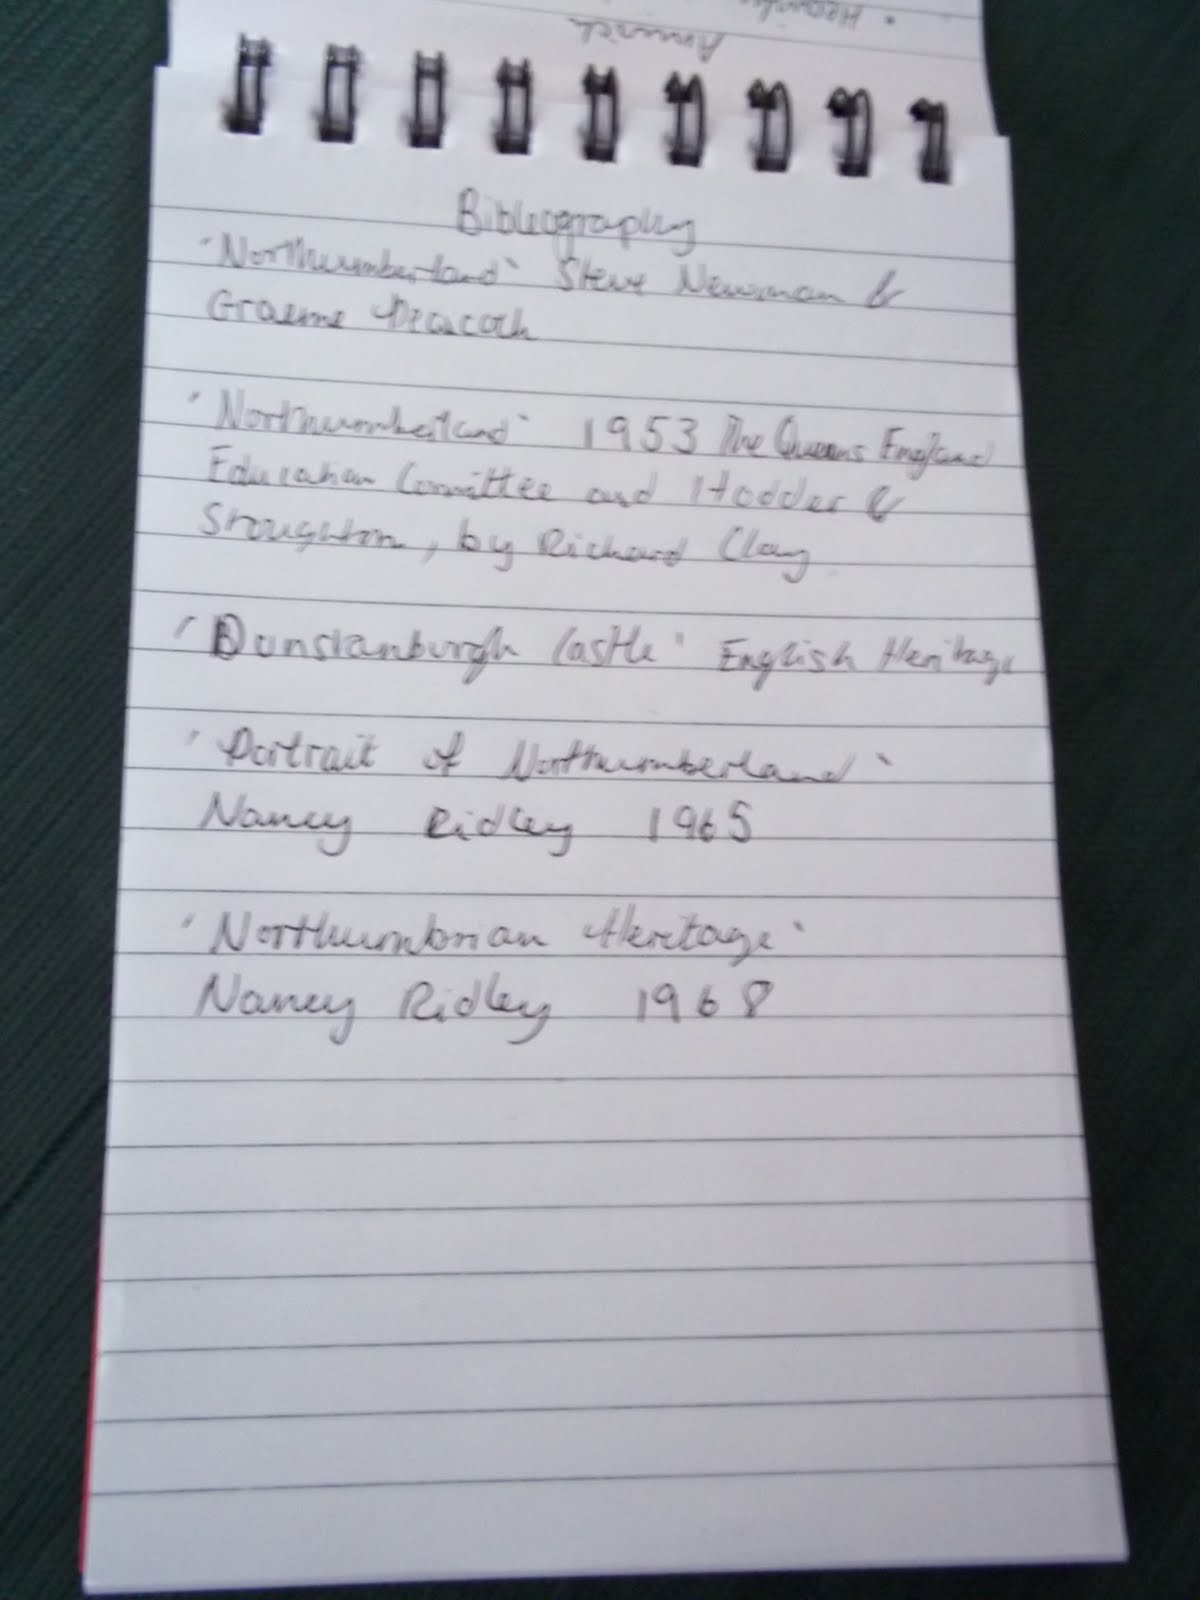 Annick
Bibleography
'Northumberland' Steve Newman &
Graeme Peacock
'Northumberland' 1953 The Queens England
Education Comittee and Hodder &
Stoughton, by Richard Clay
'Dunstanburgh Castle' English Heritage
'Portrait of Northumberland'
Nancy Ridley 1965
'Northumbrian Heritage'
Nancy Ridley 1968